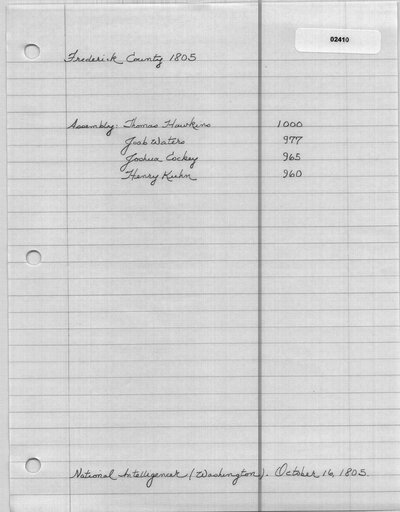 02410
Frederick County 1805
Assembly: Thomas Hawkins 1000
Joab Waters 977
Joshua Cockey 965
Henry Kuhn 960
National Intelligencer (Washington). October 16, 1805.